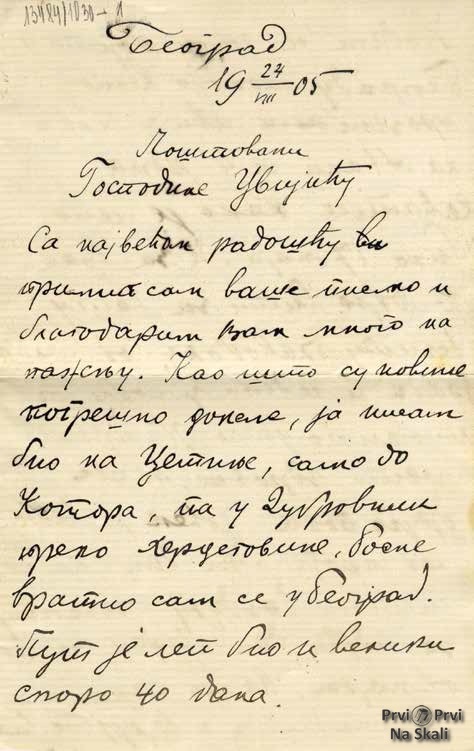 13484/1030-1
Београд
19 24/VIII 05
Поштовани
Господине Цвијићу
Са највећом радошћу
примио сам ваше писмо и
благодарим вам много на
пажњу. Као што су новине
погрешно донеле, ја нисам
био на Цетиње, само до
Котора, па у Дубровник
преко Херцеговине, босне
вратио сам се у Београд.
Пут је леп био и велики
скоро 40 дана.
Prvi Prvi
Na Skali